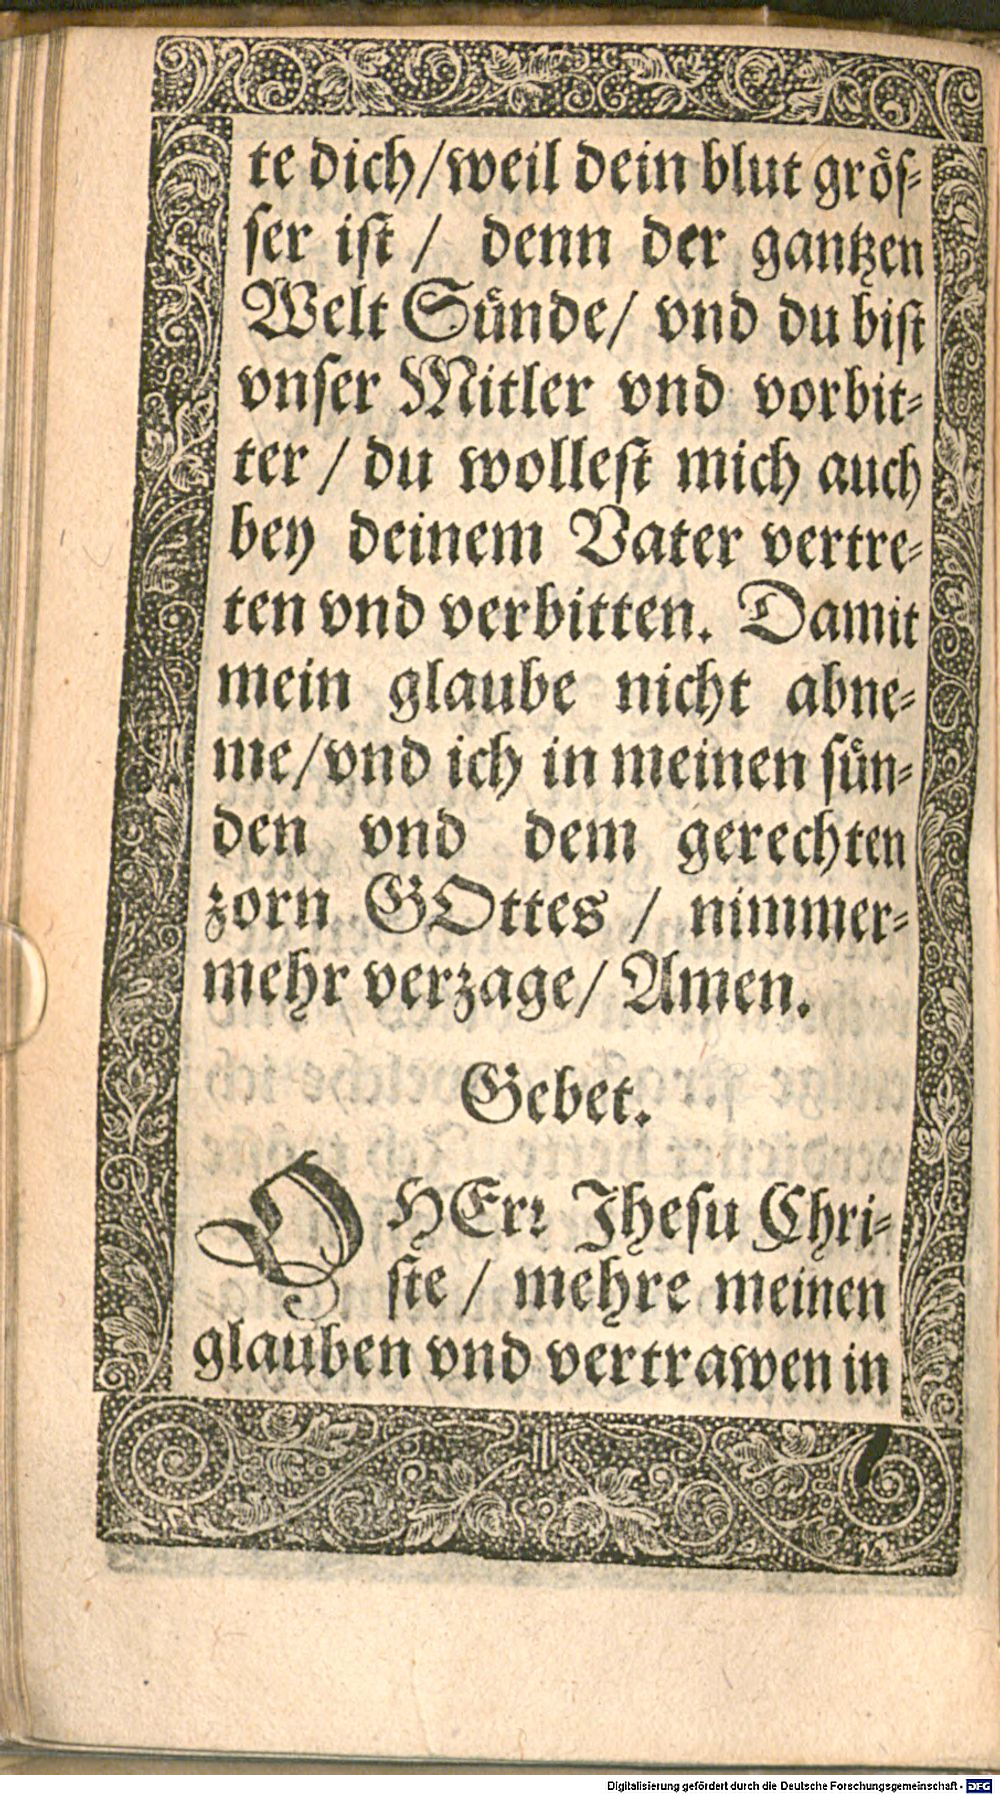 te dich/weil dein blut grös-
ser ist / denn der gantzen
Welt Sünde/ vnd du bist
vnser Mitler vnd vorbit-
ter / du wollest mich auch
bey deinem Vater vertre-
ten vnd verbitten. Damit
mein glaube nicht abne-
me/vnd ich in meinen sün-
den vnd dem gerechten
zorn GOttes / nimmer-
mehr verzage/ Amen.
Gebet.
O HErr Jhesu Chri-
ste / mehre meinen
glauben vnd vertrawen in
Digitalisierung gefördert durch die Deutsche Forschungsgemeinschaft - DFG